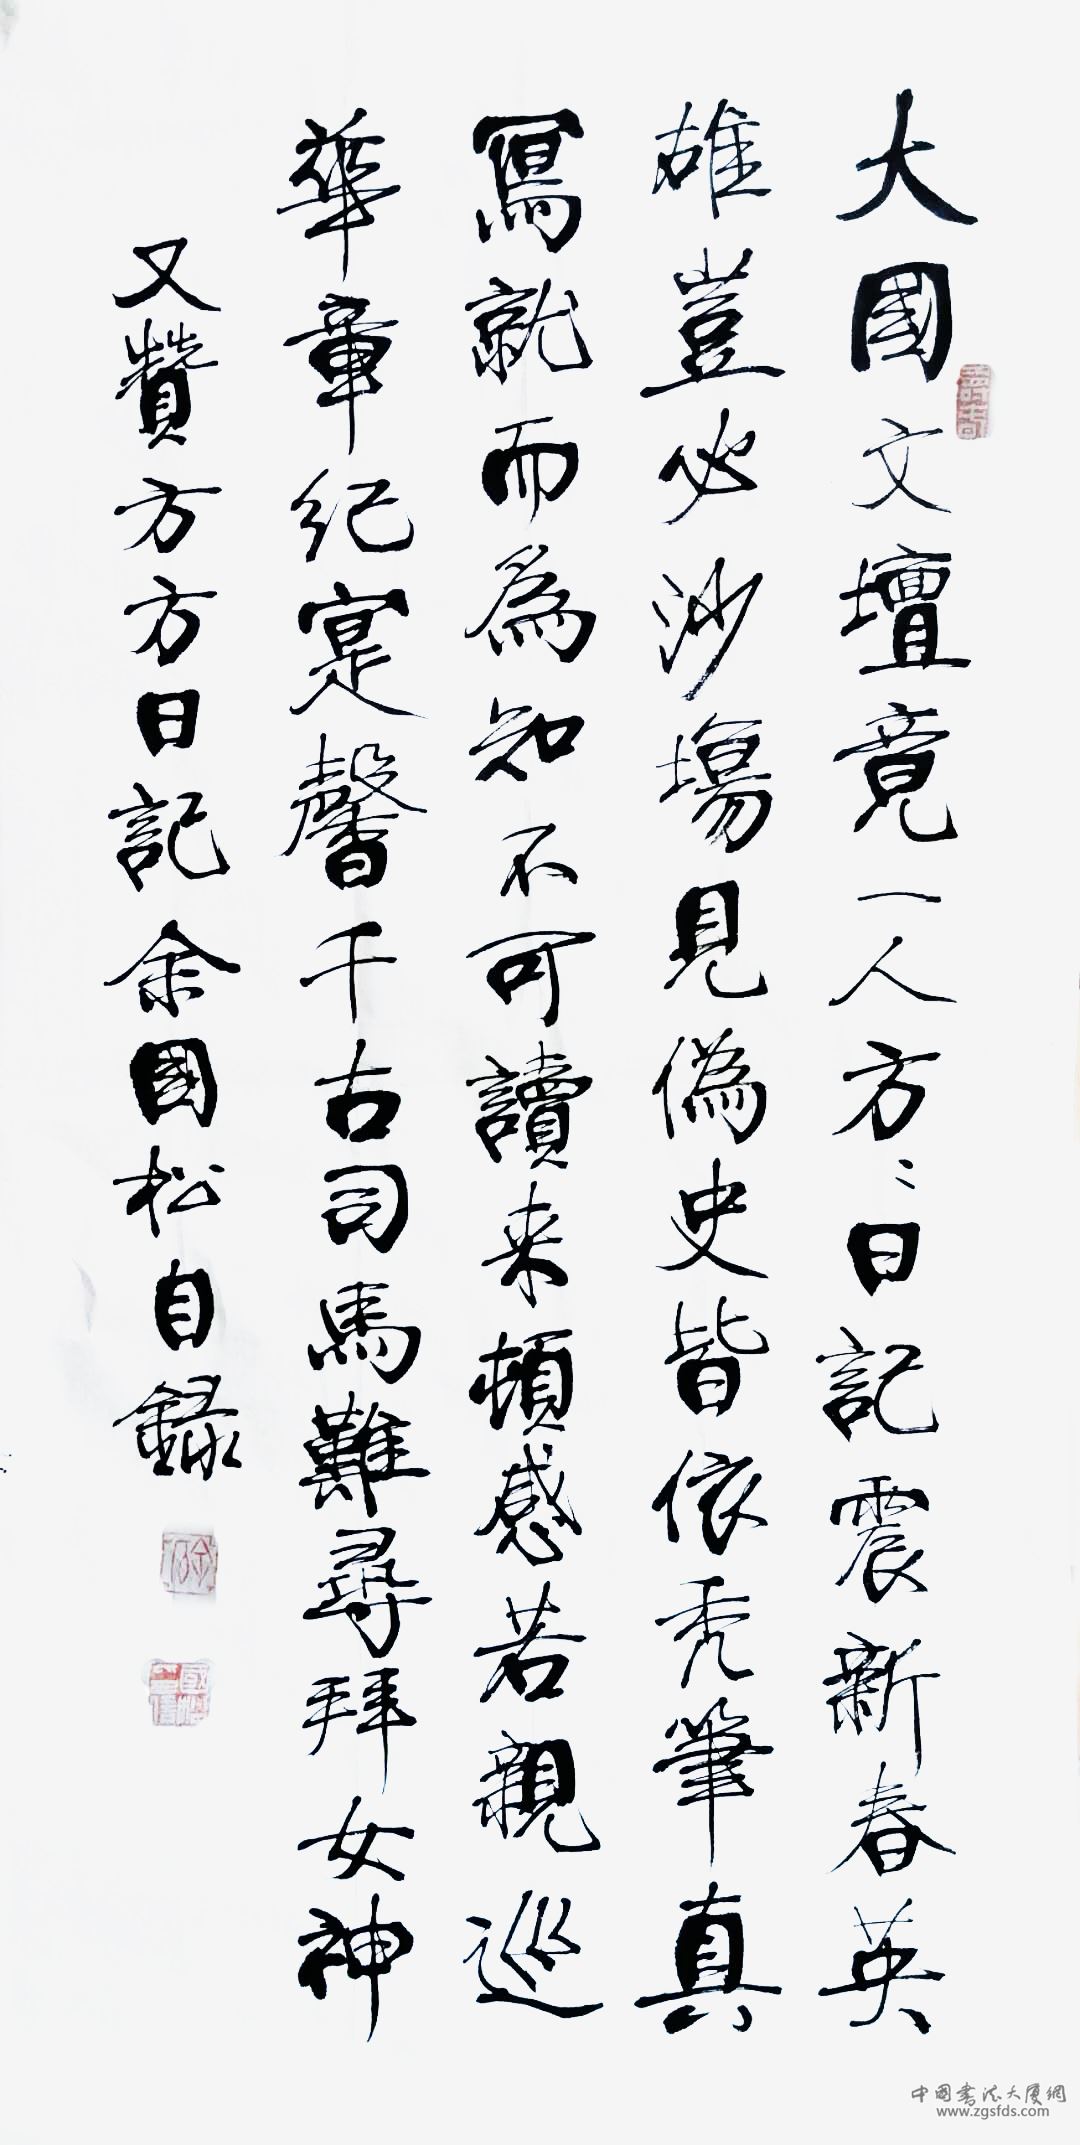 大國文壇竟一人方〻日記震新春英
雄豈必沙塲見偽史皆依禿筆真
寫就而為知不可讀来頓感若親巡
華章紀寔馨千古司馬難尋拜女神
又贊方方日記余國松自録
中国書法大厦網
www.zgsfds.com